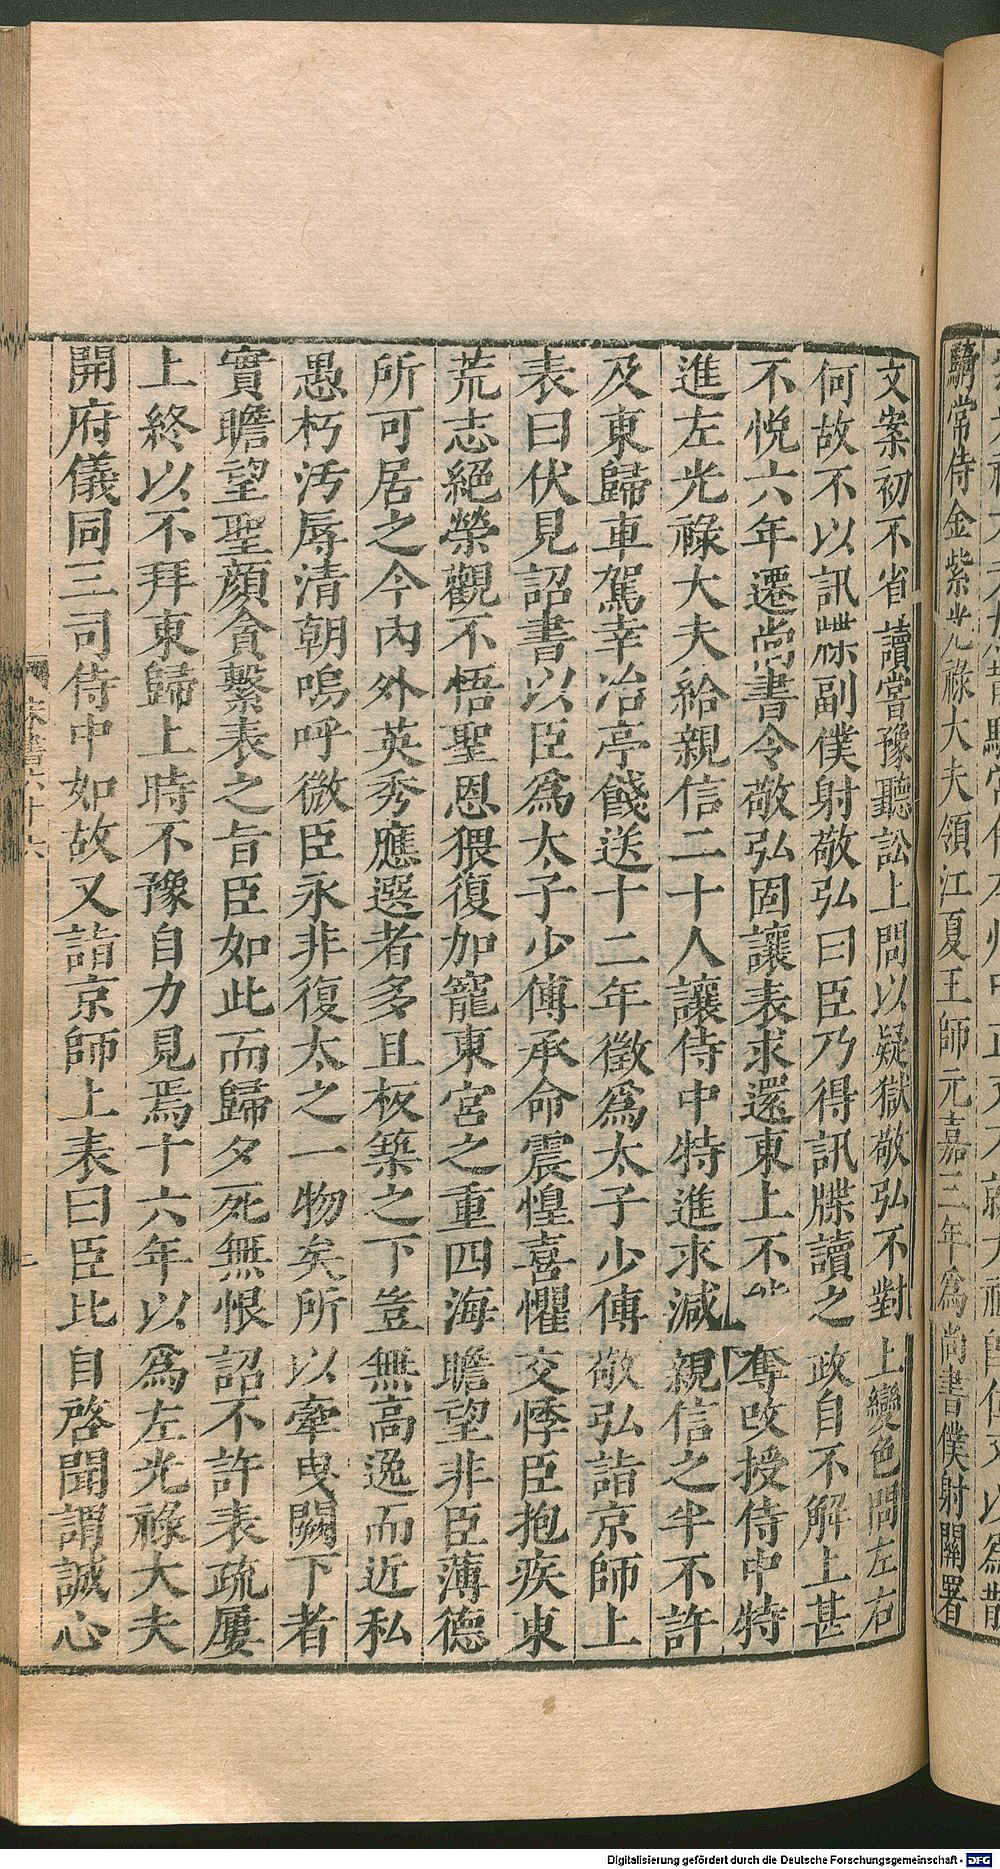 騎常侍金紫光祿大夫領江夏王師元嘉三年為尚書僕射關署
文案初不省讀嘗豫聽訟上問以疑獄敬弘不對上變色問左右
何故不以訊牒副僕射敬弘曰臣乃得訊牒讀之政自不解上甚
不悅六年遷尚書令敬弘固讓表求還東上不能奪改授侍中特
進左光祿大夫給親信二十人讓侍中特進求減親信之半不許
及東歸車駕幸冶亭餞送十二年徵爲太子少傅敬弘詣京師上
表曰伏見詔書以臣爲太子少傅承命震惶喜懼交悸臣抱疾東
荒志絕榮觀不悟聖恩猥復加寵東宮之重四海瞻望非臣薄德
所可居之今內外英秀應選者多且板築之下豈無高逸而近私
愚朽汚辱清朝嗚呼微臣永非復太之一物矣所以牽曳闕下者
實瞻望聖顏貪繫表之旨臣如此而歸夕死無恨詔不許表疏屢
上終以不拜東歸上時不豫自力見焉十六年以爲左光祿大夫
開府儀同三司侍中如故又詣京師上表曰臣比自啓聞謂誠心
Digitalisierung gefördert durch die Deutsche Forschungsgemeinschaft - DFG